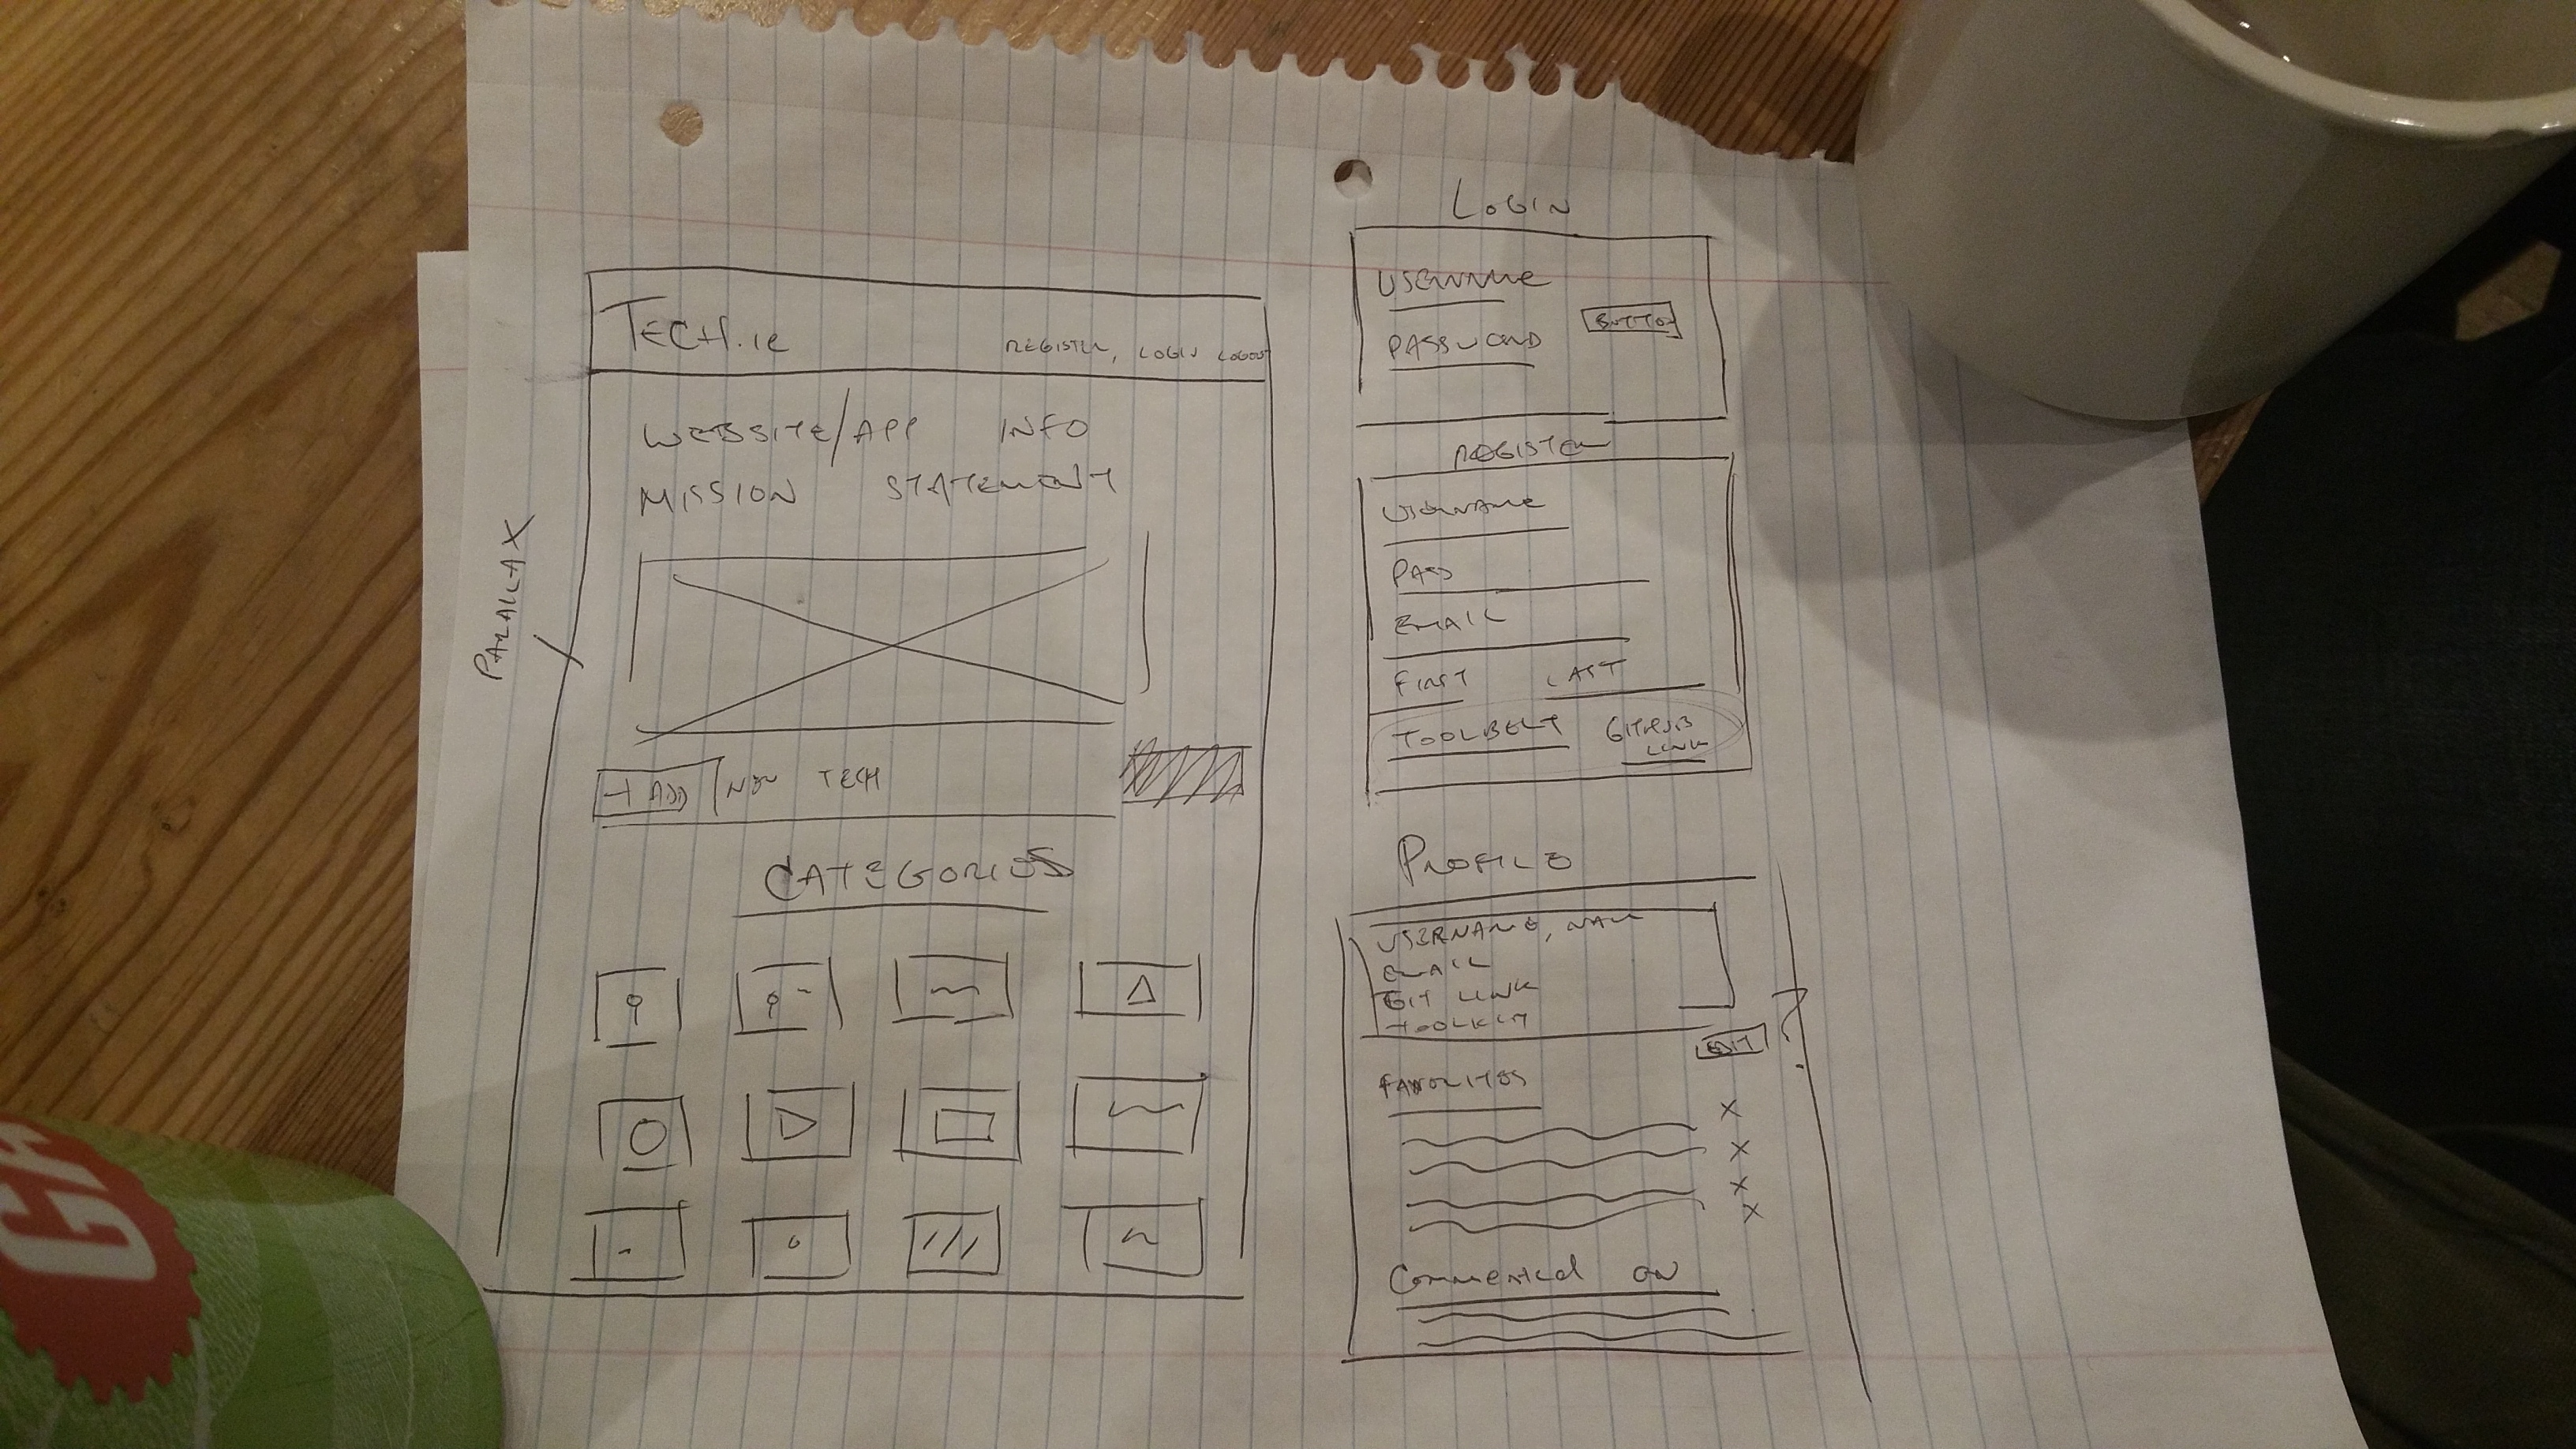 LOGIN
TECH.ie
REGISTER, LOGIN LOGOUT
WEBSITE/APP INFO
MISSION STATEMENT
PARALLAX
+ ADD NEW TECH
CATEGORIES
USERNAME
PASSWORD
BUTTON
REGISTER
USERNAME
PASS
EMAIL
FIRST LAST
TOOLBELT GITHUB
LINK
PROFILE
USERNAME, NAME
EMAIL
GIT LINK
EDIT
?
FAVORITES
X
X
X
X
Commented on